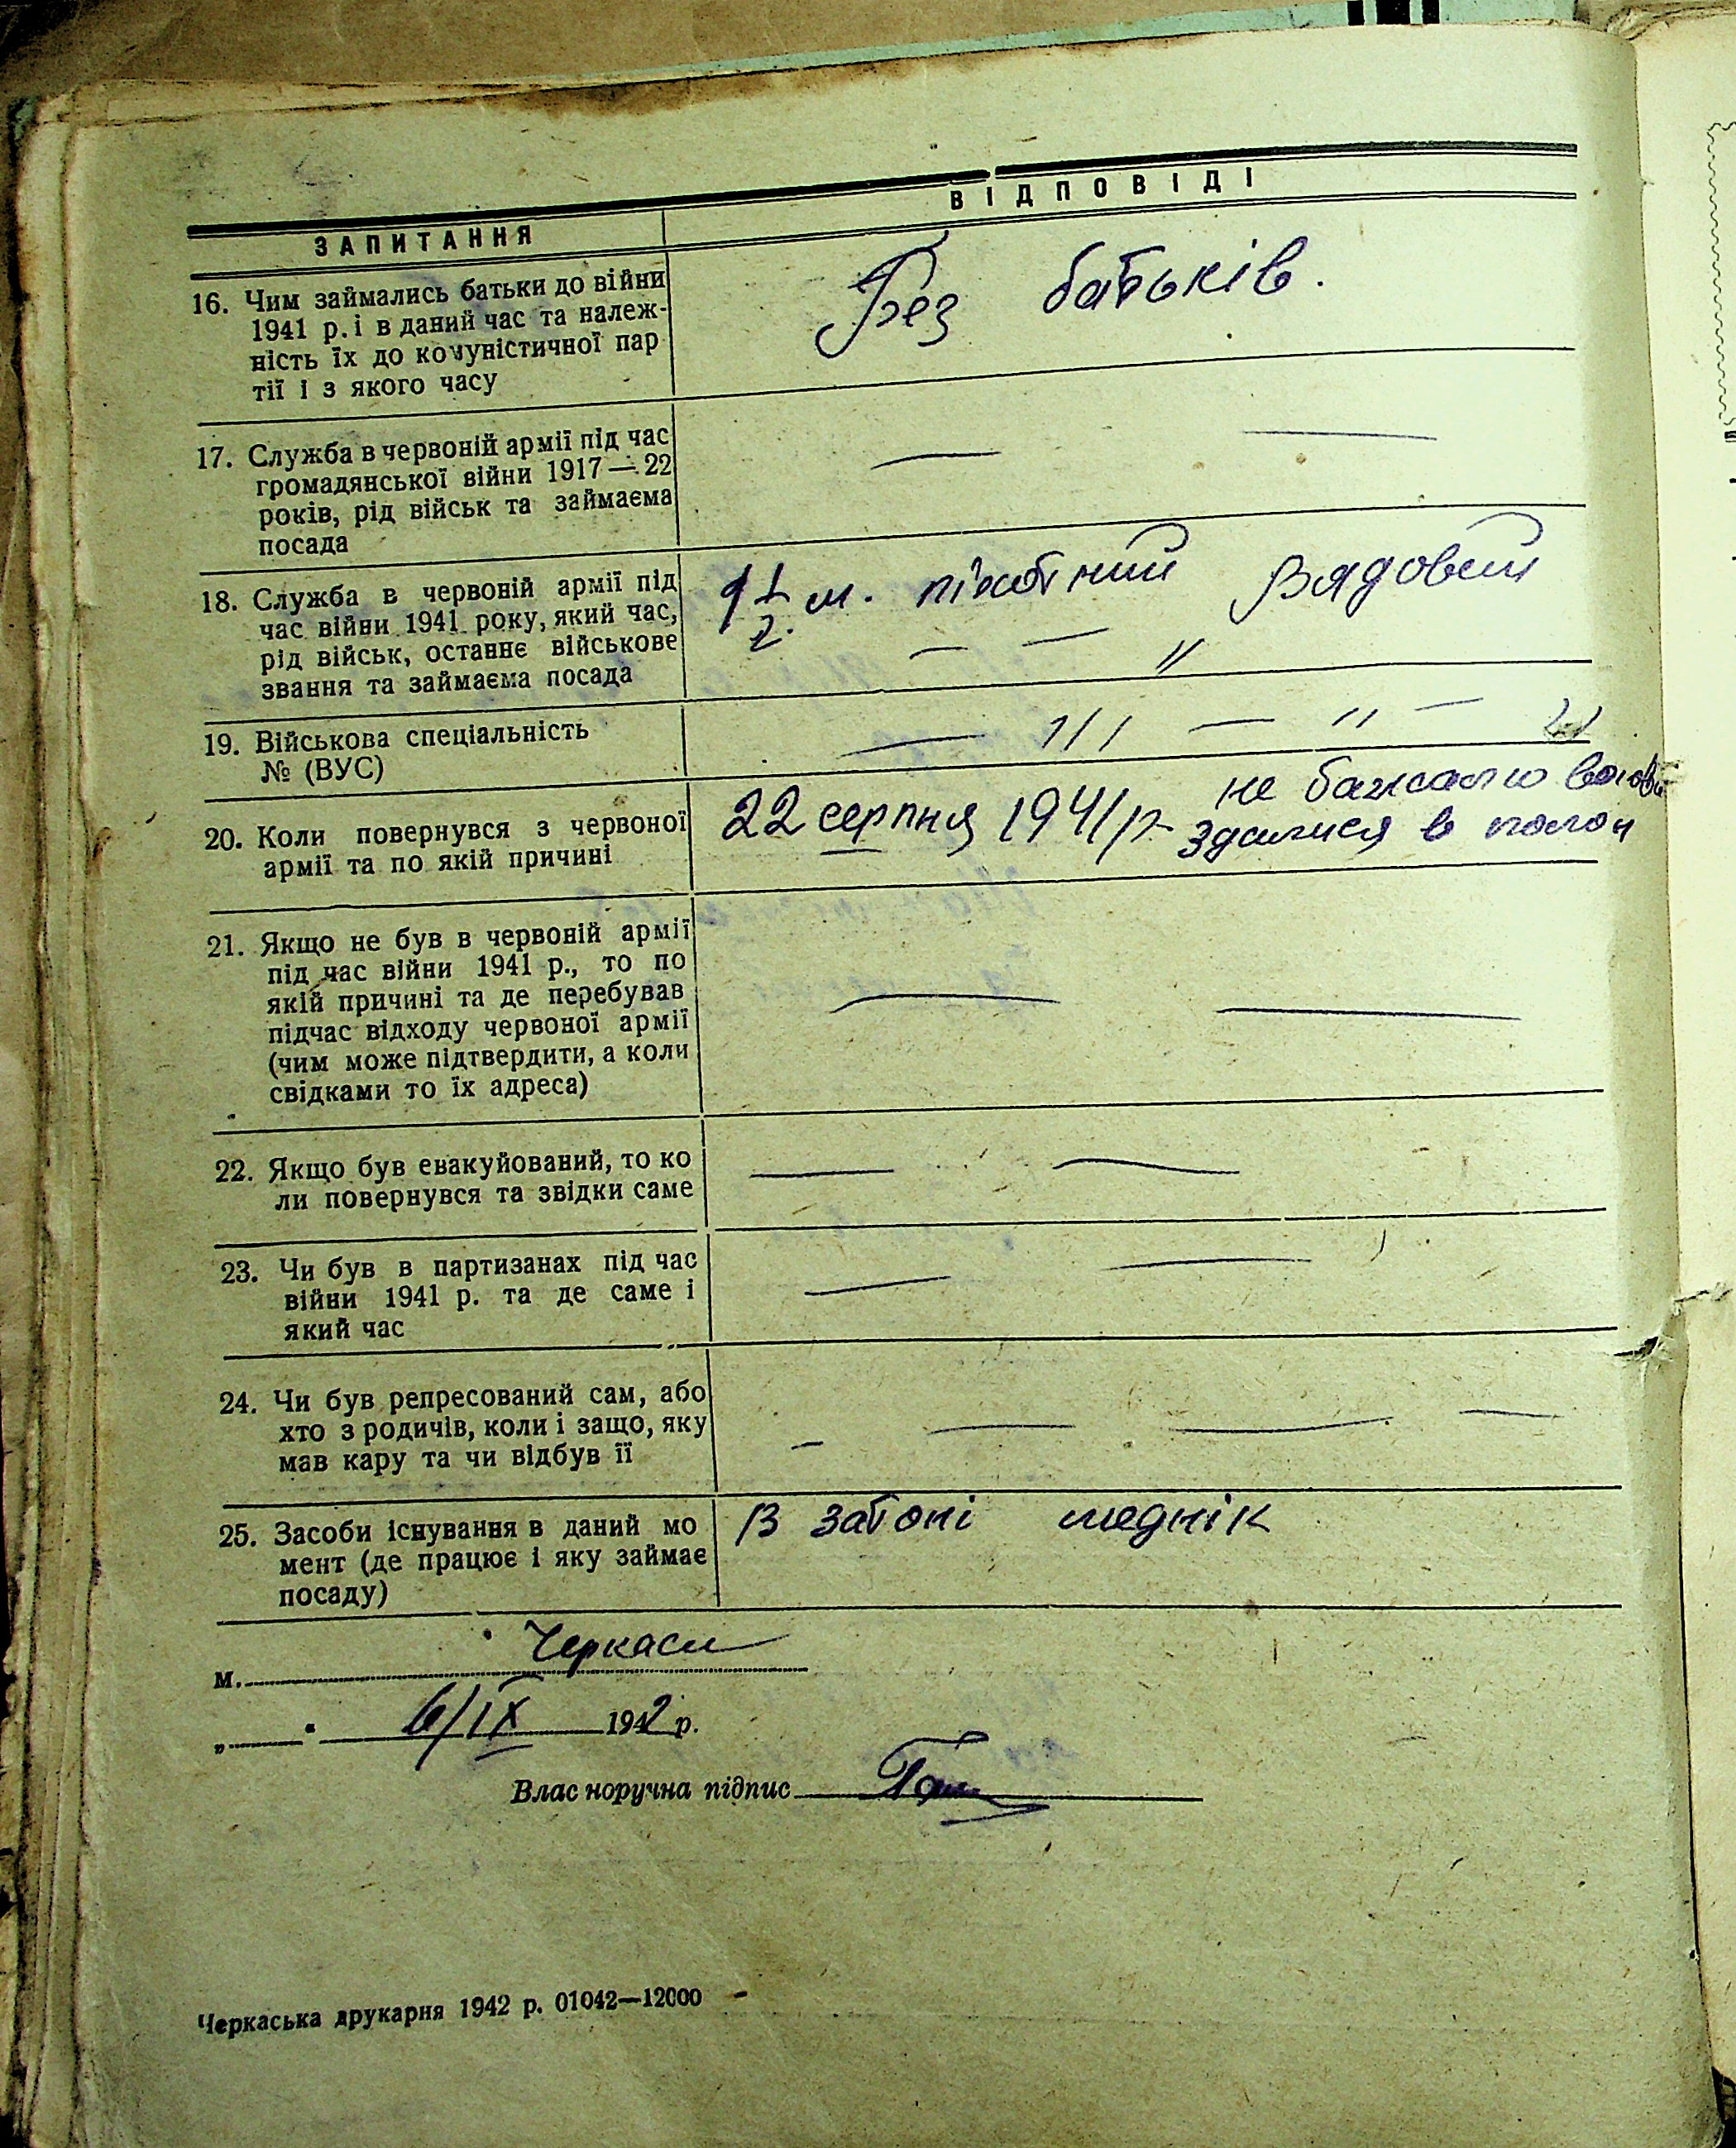 ЗАПИТАННЯ ВІДПОВІДІ
16. Чим займались батьки до війни
1941 р. і в даний час та належ-
ність їх до комуністичної пар
тії і з якого часу
Без батьків.
17. Служба в червоній армії під час
громадянської війни 1917—22
років, рід військ та займаєма
посада
— —
18. Служба в червоній армії під
час війни 1941 року, який час,
рід військ, останнє військове
звання та займаєма посада
1 1/2 м. піхотний Рядовий
— — "
19. Військова спеціальність
№ (ВУС)
— /// — " — "
20. Коли повернувся з червоної
армії та по якій причині
22 серпня 1941 р. не бажаю
здалися в полон
21. Якщо не був в червоній армії
під час війни 1941 р., то по
якій причині та де перебував
підчас відходу червоної армії
(чим може підтвердити, а коли
свідками то їх адреса)
— —
22. Якщо був евакуйований, то ко
ли повернувся та звідки саме
— —
23. Чи був в партизанах під час
війни 1941 р. та де саме і
який час
— —
24. Чи був репресований сам, або
хто з родичів, коли і защо, яку
мав кару та чи відбув її
— — — —
25. Засоби існування в даний мо
мент (де працює і яку займає
посаду)
В затоні меднік
м. Черкаси
„ " 6/IX 1942 р.
Влас норучна підпис
Черкаська друкарня 1942 р. 01042—12000